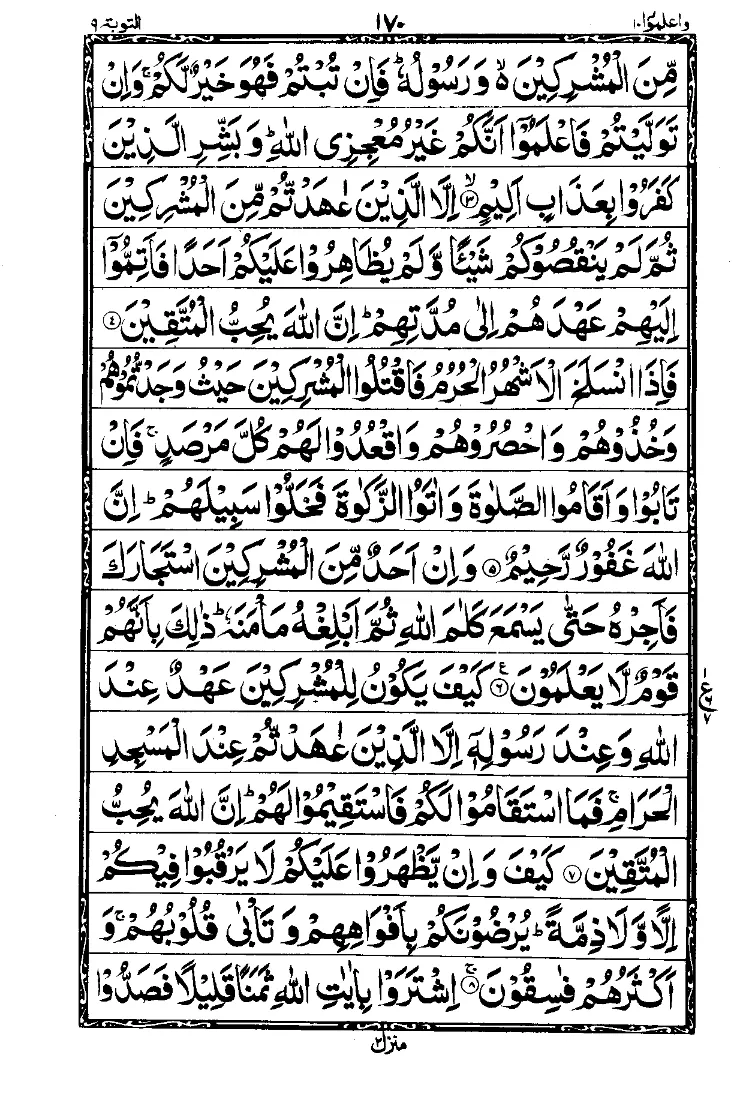 التوبة ٩
١٧٠
واعلموا ١٠
مِّنَ الْمُشْرِكِيْنَ ۙ۬ وَ رَسُوْلُهٗ ؕ فَاِنْ تُبْتُمْ فَهُوَ خَيْرٌ لَّكُمْ ۚ وَاِنْ
تَوَلَّيْتُمْ فَاعْلَمُوْۤا اَنَّكُمْ غَيْرُ مُعْجِزِى اللّٰهِ ؕ وَ بَشِّرِ الَّذِيْنَ
كَفَرُوْا بِعَذَابٍ اَلِيْمٍ ۙ‏﴿۳﴾ اِلَّا الَّذِيْنَ عٰهَدْتُّمْ مِّنَ الْمُشْرِكِيْنَ
ثُمَّ لَمْ يَنْقُصُوْكُمْ شَيْـًٔا وَّ لَمْ يُظَاهِرُوْا عَلَيْكُمْ اَحَدًا فَاَتِمُّوْۤا
اِلَيْهِمْ عَهْدَهُمْ اِلٰى مُدَّتِهِمْ ؕ اِنَّ اللّٰهَ يُحِبُّ الْمُتَّقِيْنَ ﴿۴﴾
فَاِذَا انْسَلَخَ الْاَشْهُرُ الْحُرُمُ فَاقْتُلُوا الْمُشْرِكِيْنَ حَيْثُ وَجَدْتُّمُوْهُمْ
وَخُذُوْهُمْ وَاحْصُرُوْهُمْ وَاقْعُدُوْا لَهُمْ كُلَّ مَرْصَدٍ ۚ فَاِنْ
تَابُوْا وَ اَقَامُوا الصَّلٰوةَ وَ اٰتَوُا الزَّكٰوةَ فَخَلُّوْا سَبِيْلَهُمْ ؕ اِنَّ
اللّٰهَ غَفُوْرٌ رَّحِيْمٌ ﴿۵﴾ وَ اِنْ اَحَدٌ مِّنَ الْمُشْرِكِيْنَ اسْتَجَارَكَ
فَاَجِرْهُ حَتّٰى يَسْمَعَ كَلٰمَ اللّٰهِ ثُمَّ اَبْلِغْهُ مَاْمَنَهٗ ؕ ذٰلِكَ بِاَنَّهُمْ
قَوْمٌ لَّا يَعْلَمُوْنَ ﴿۶﴾ كَيْفَ يَكُوْنُ لِلْمُشْرِكِيْنَ عَهْدٌ عِنْدَ
اللّٰهِ وَ عِنْدَ رَسُوْلِهٖۤ اِلَّا الَّذِيْنَ عٰهَدْتُّمْ عِنْدَ الْمَسْجِدِ
الْحَرَامِ ۚ فَمَا اسْتَقَامُوْا لَكُمْ فَاسْتَقِيْمُوْا لَهُمْ ؕ اِنَّ اللّٰهَ يُحِبُّ
الْمُتَّقِيْنَ ﴿۷﴾ كَيْفَ وَ اِنْ يَّظْهَرُوْا عَلَيْكُمْ لَا يَرْقُبُوْا فِيْكُمْ
اِلًّا وَّ لَا ذِمَّةً ؕ يُرْضُوْنَكُمْ بِاَفْوَاهِهِمْ وَ تَاْبٰى قُلُوْبُهُمْ ۚ وَ
اَكْثَرُهُمْ فٰسِقُوْنَ ۚ‏﴿۸﴾ اِشْتَرَوْا بِاٰيٰتِ اللّٰهِ ثَمَنًا قَلِيْلًا فَصَدُّوْا
منزل ٢